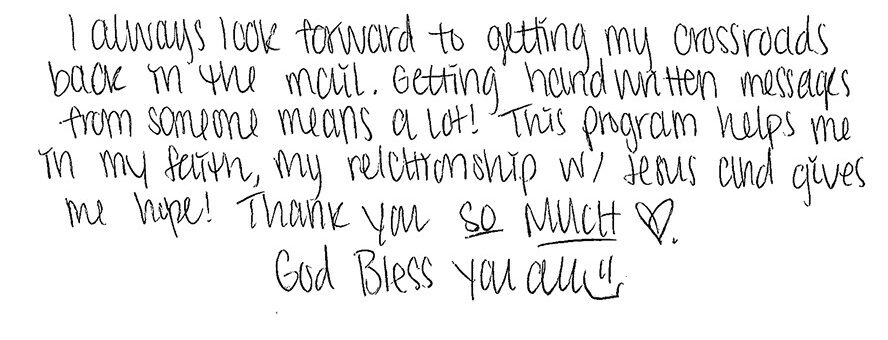 I always look forward to getting my crossroads
back in the mail. Getting handwritten messages
from someone means a lot! This program helps me
in my faith, my relationship w/ Jesus and gives
me hope! Thank you so MUCH ♡.
God Bless you all